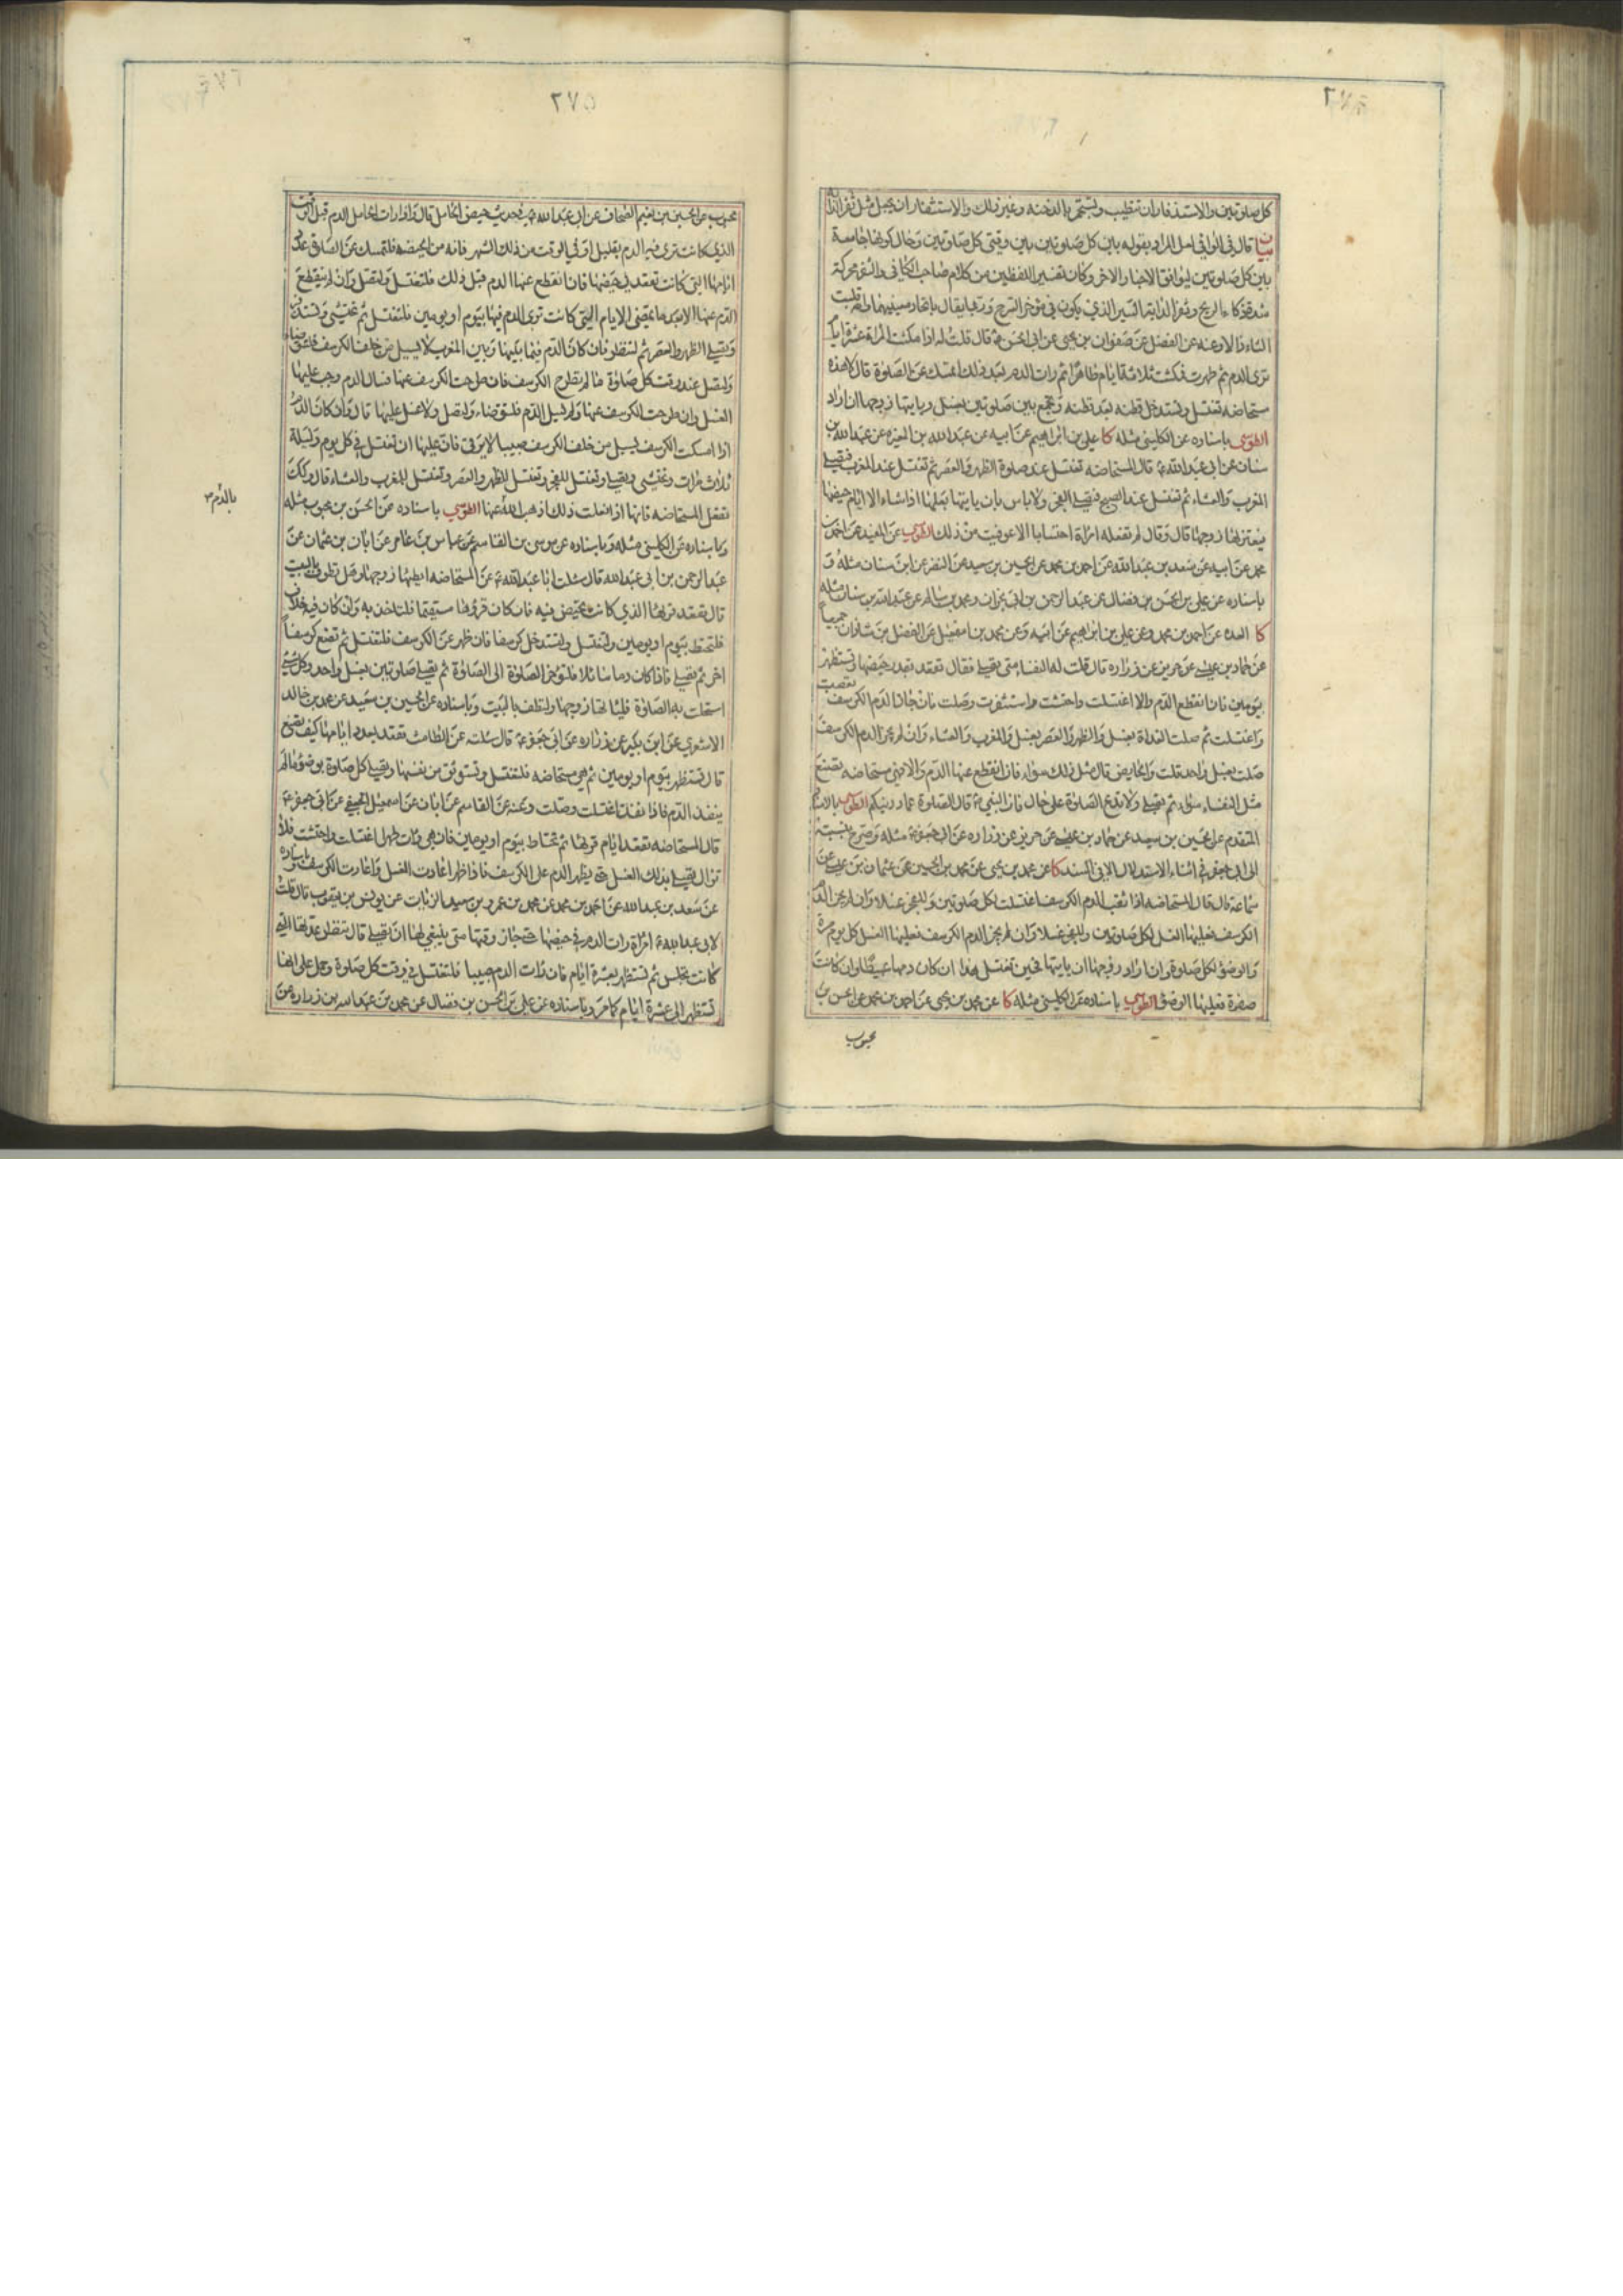 كل صلوتين والاستذفار ان تطيب وتستجمر بالدخنه وغير ذلك والاستثفار ان يجعل مثل ثفر الدابه
بيان قال في الوافي لعل المراد بقوله بين كل صلوتين بين وقتي كل صلوتين وحال كونها جامعة
بين كل صلوتين ليوافق الاخبار الاخر وكان تفسير اللفظين من كلام صاحب الكافي والذفر محركة
شدة ذكاء الريح وثفر الدابه السير الذي يكون في مؤخر السرج وربما يقال باتحاد معنييهما وانه قلبت
الثاء ذالا وعنه عن الفضل عن صفوان بن يحيى عن ابي الحسن ع قال قلت له اذا مكثت المراة عشرة ايام
ترى الدم ثم طهرت فمكثت ثلاثة ايام طاهرا ثم رات الدم بعد ذلك اتمسك عن الصلوة قال لا هذه
مستحاضه تغتسل وتستدخل قطنه بعد قطنه وتجمع بين صلوتين بغسل وياتيها زوجها ان اراد
الطوسي باسناده عن الكليني مثله كا علي بن ابراهيم عن ابيه عن عبد الله بن المغيره عن عبد الله بن
سنان عن ابي عبد الله ع قال المستحاضه تغتسل عند صلوة الظهر والعصر ثم تغتسل عند المغرب فتصلي
المغرب والعشاء ثم تغتسل عند الصبح فتصلي الفجر ولا باس بان ياتيها بعلها اذا شاء الا ايام حيضها
فيعتزلها زوجها قال وقال لم تفعله امراة احتسابا الا عوفيت من ذلك الطوسي عن المفيد عن احمد بن
محمد عن ابيه عن سعد بن عبد الله عن احمد بن محمد عن الحسين بن سعيد عن النضر عن ابن سنان مثله و
باسناده عن علي بن الحسن بن فضال عن عبد الرحمن بن ابي نجران ومحمد بن سالم عن عبد الله بن سنان مثله
كا العده عن احمد بن محمد وعن علي بن ابراهيم عن ابيه وعن محمد بن اسمعيل عن الفضل بن شاذان جميعا
عن حماد بن عيسى عن حريز عن زراره قال قلت له النفساء متى تصلي فقال تقعد بقدر حيضها وتستظهر
بيومين فان انقطع الدم والا اغتسلت واحتشت واستثفرت وصلت فان جاز الدم الكرسف تعصبت
واغتسلت ثم صلت الغداة بغسل والظهر والعصر بغسل والمغرب والعشاء وان لم يجز الدم الكرسف
صلت بغسل واحد قلت والحايض قال مثل ذلك سواء فان انقطع عنها الدم والا فهي مستحاضه تصنع
مثل النفساء سواء ثم تصلي ولا تدع الصلوة على حال فان النبي ص قال الصلوة عماد دينكم الطوسي بالاسناد
المتقدم عن الحسين بن سعيد عن حماد بن عيسى عن حريز عن زراره عن ابي جعفر ع مثله وصرح بنسبته
الى ابي جعفر في اثناء الاستدلال لا في السند كا عن محمد بن يحيى عن محمد بن الحسين عن عثمان بن عيسى عن
سماعة قال قال المستحاضه اذا ثقب الدم الكرسف اغتسلت لكل صلوتين وللفجر غسلا وان لم يجز الدم
الكرسف فعليها الغسل لكل صلوتين وللفجر غسلا وان لم يجز الدم الكرسف فعليها الغسل كل يوم مرة
والوضوء لكل صلوة وان اراد زوجها ان ياتيها فحين تغتسل هذا ان كان دمها عبيطا وان كانت
صفرة فعليها الوضوء الطوسي باسناده عن الكليني مثله كا عن محمد بن يحيى عن احمد بن محمد عن الحسن بن
محبوب
٢٧٥
محبوب عن الحسين بن نعيم الصحاف عن ابي عبد الله ع في حديث حيض الحامل قال واذا رات الحامل الدم قبل الوقت
الذي كانت ترى فيه الدم بقليل او في الوقت من ذلك الشهر فانه من الحيضه فلتمسك عن الصلوة عدد
ايامها التي كانت تقعد في حيضها فان انقطع عنها الدم قبل ذلك فلتغتسل ولتصل وان لم ينقطع
الدم عنها الا بعد ما تمضي الايام التي كانت ترى الدم فيها بيوم او يومين فلتغتسل ثم تحتشي وتستذفر
وتصلي الظهر والعصر ثم لتنظر فان كان الدم فيما بينها وبين المغرب لا يسيل من خلف الكرسف فلتتوضاء
ولتصل عند وقت كل صلوة ما لم تطرح الكرسف فان طرحت الكرسف عنها فسال الدم وجب عليها
الغسل وان طرحت الكرسف عنها ولم يسل الدم فلتتوضاء ولتصل ولا غسل عليها قال وان كان الدم
اذا امسكت الكرسف يسيل من خلف الكرسف صبيبا لا يرقى فان عليها ان تغتسل في كل يوم وليلة
ثلاث مرات وتحتشي وتصلي وتغتسل للفجر وتغتسل للظهر والعصر وتغتسل للمغرب والعشاء قال وكذلك
تفعل المستحاضه فانها اذا فعلت ذلك اذهب الله عنها الطوسي باسناده عن الحسن بن محبوب مثله
بالدم
وباسناده عن الكليني مثله وباسناده عن موسى بن القاسم عن عباس بن عامر عن ابان بن عثمان عن
عبد الرحمن بن ابي عبد الله قال سئلت ابا عبد الله ع عن المستحاضه ايطؤها زوجها وهل تطوف بالبيت
قال تقعد قرئها الذي كانت تحيض فيه فان كان قرؤها مستقيما فلتاخذ به وان كان فيه خلاف
فلتحتط بيوم او يومين ولتغتسل ولتستدخل كرسفا فان ظهر عن الكرسف فلتغتسل ثم تضع كرسفا
اخر ثم تصلي فاذا كان دما سائلا فلتؤخر الصلوة الى الصلوة ثم تصلي صلوتين بغسل واحد وكل شيء
استحلت به الصلوة فلياتها زوجها ولتطف بالبيت وباسناده عن الحسين بن سعيد عن محمد بن خالد
الاشعري عن ابن بكير عن زراره عن ابي جعفر ع قال سئلته عن الطامث تقعد بعدد ايامها كيف تصنع
قال تستظهر بيوم او يومين ثم هي مستحاضه فلتغتسل وتستوثق من نفسها وتصلي كل صلوة بوضوء ما لم
ينفذ الدم فاذا نفذ اغتسلت وصلت وعنه عن القاسم عن ابان عن اسمعيل الجعفي عن ابي جعفر ع
قال المستحاضه تقعد ايام قرئها ثم تحتاط بيوم او يومين فان هي رات طهرا اغتسلت واحتشت فلا
تزال تصلي بذلك الغسل حتى يظهر الدم على الكرسف فاذا ظهر اعادت الغسل واعادت الكرسف وباسناده
عن سعد بن عبد الله عن احمد بن محمد عن محمد بن عمرو بن سعيد الزيات عن يونس بن يعقوب قال قلت
لابي عبد الله ع امراة رات الدم في حيضها حتى جاز وقتها متى ينبغي لها ان تصلي قال تنتظر عدتها التي
كانت تجلس ثم تستظهر بعشرة ايام فان رات الدم صبيبا فلتغتسل في وقت كل صلوة وحمل على انها
تستظهر الى عشرة ايام كما مر وباسناده عن علي بن الحسن بن فضال عن محمد بن عبد الله بن زراره عن